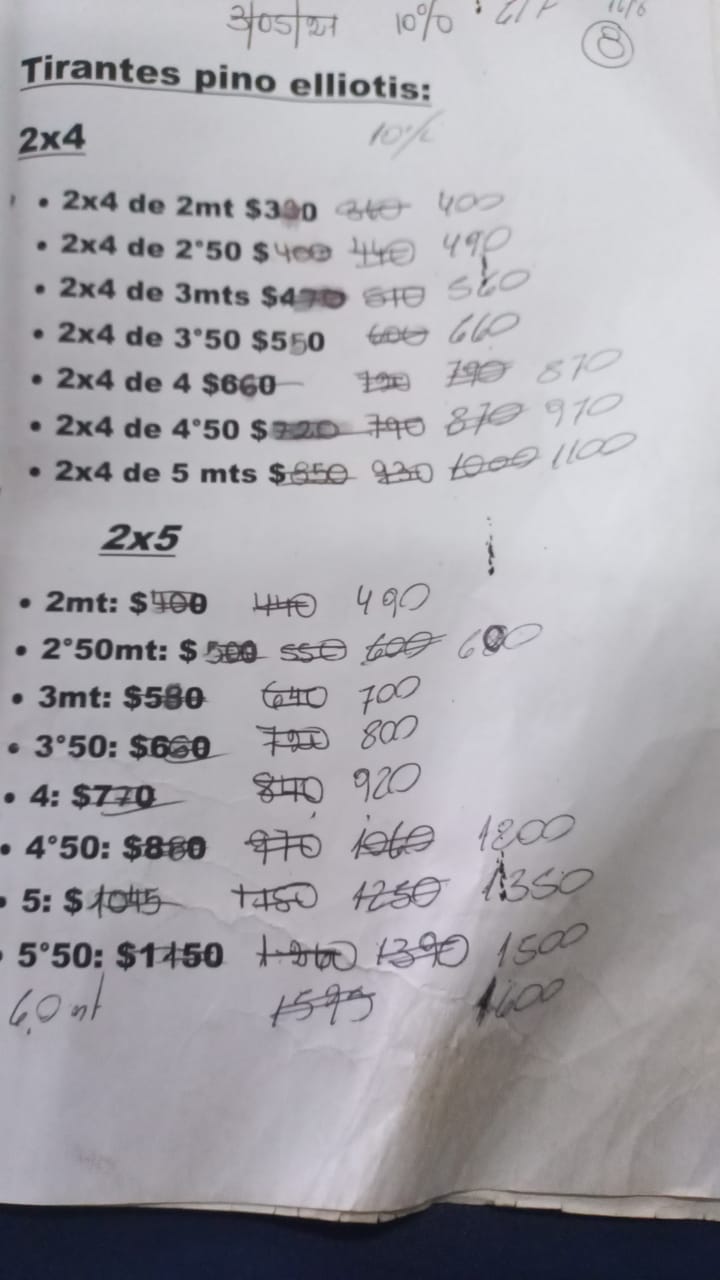 3/05/21 10%
8
Tirantes pino elliotis:
2x4 10%
• 2x4 de 2mt $330 360 400
• 2x4 de 2°50 $400 440 490
• 2x4 de 3mts $470 510 560
• 2x4 de 3°50 $550 600 660
• 2x4 de 4 $660 720 790 870
• 2x4 de 4°50 $720 790 870 970
• 2x4 de 5 mts $850 930 1000 1100
2x5
• 2mt: $400 440 490
• 2°50mt: $500 550 600 680
• 3mt: $580 640 700
• 3°50: $660 720 800
• 4: $770 840 920
• 4°50: $880 970 1060 1200
• 5: $1045 1150 1250 1350
• 5°50: $1150 1260 1390 1500
6,0 mt 1595 1600